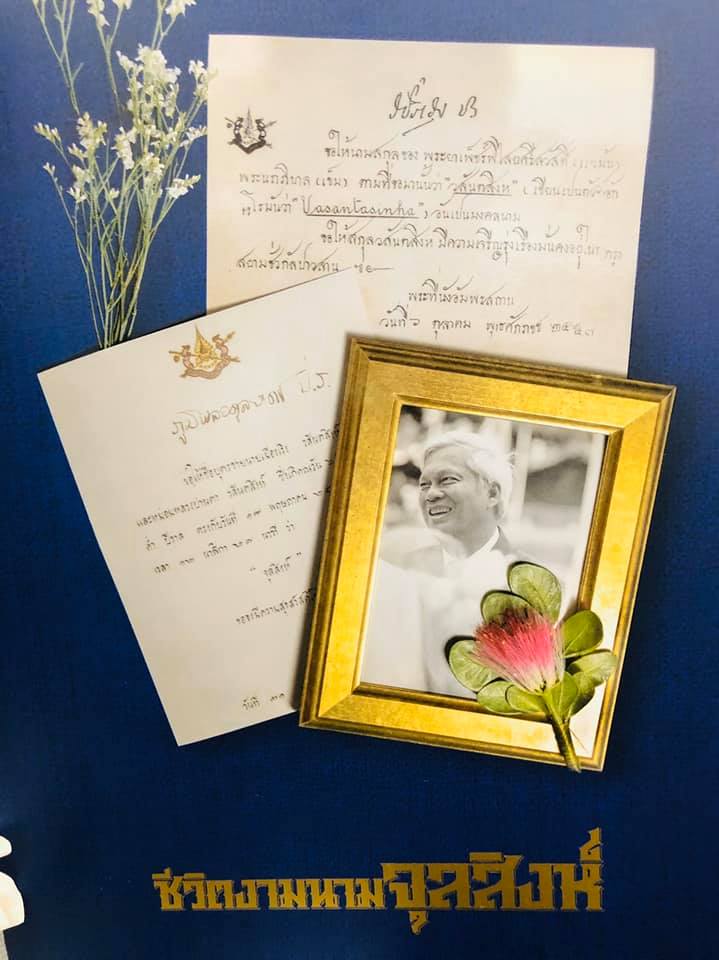 ขอให้นามสกุลของ
ตามที่ขอมานั้นว่า "วสันตสิงห" (เขียนเป็นตัวอักษร
โรมันว่า "Vasantasinha") อันเป็นมงคลนาม
ขอให้สกุลวสันตสิงห มีความเจริญรุ่งเรืองมั่นคงอยู่ใน กรุง
สยามชั่วกัลปาวสาน
พระที่นั่งอัมพรสถาน
วันที่ ๖ ตุลาคม พุทธศักราช
ภูมิพลอดุลยเดช ป.ร.
ขอให้ชื่อบุตรชายนาย
และหม่อมหลวง วสันตสิงห์
ค่ำ ปีขาล ตรงกับวันที่ ๑๗ พฤษภาคม
เวลา นาฬิกา นาที ว่า
" จุลสิงห์ "
ขอจงมีความสุขสวัสดิ์
วันที่
ชีวิตงามนามจุลสิงห์